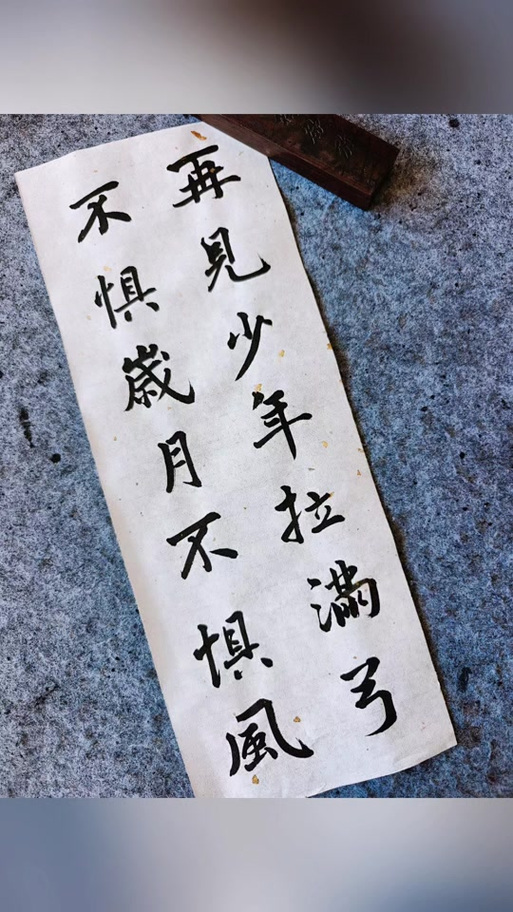 再見少年拉滿弓
不惧歲月不惧風